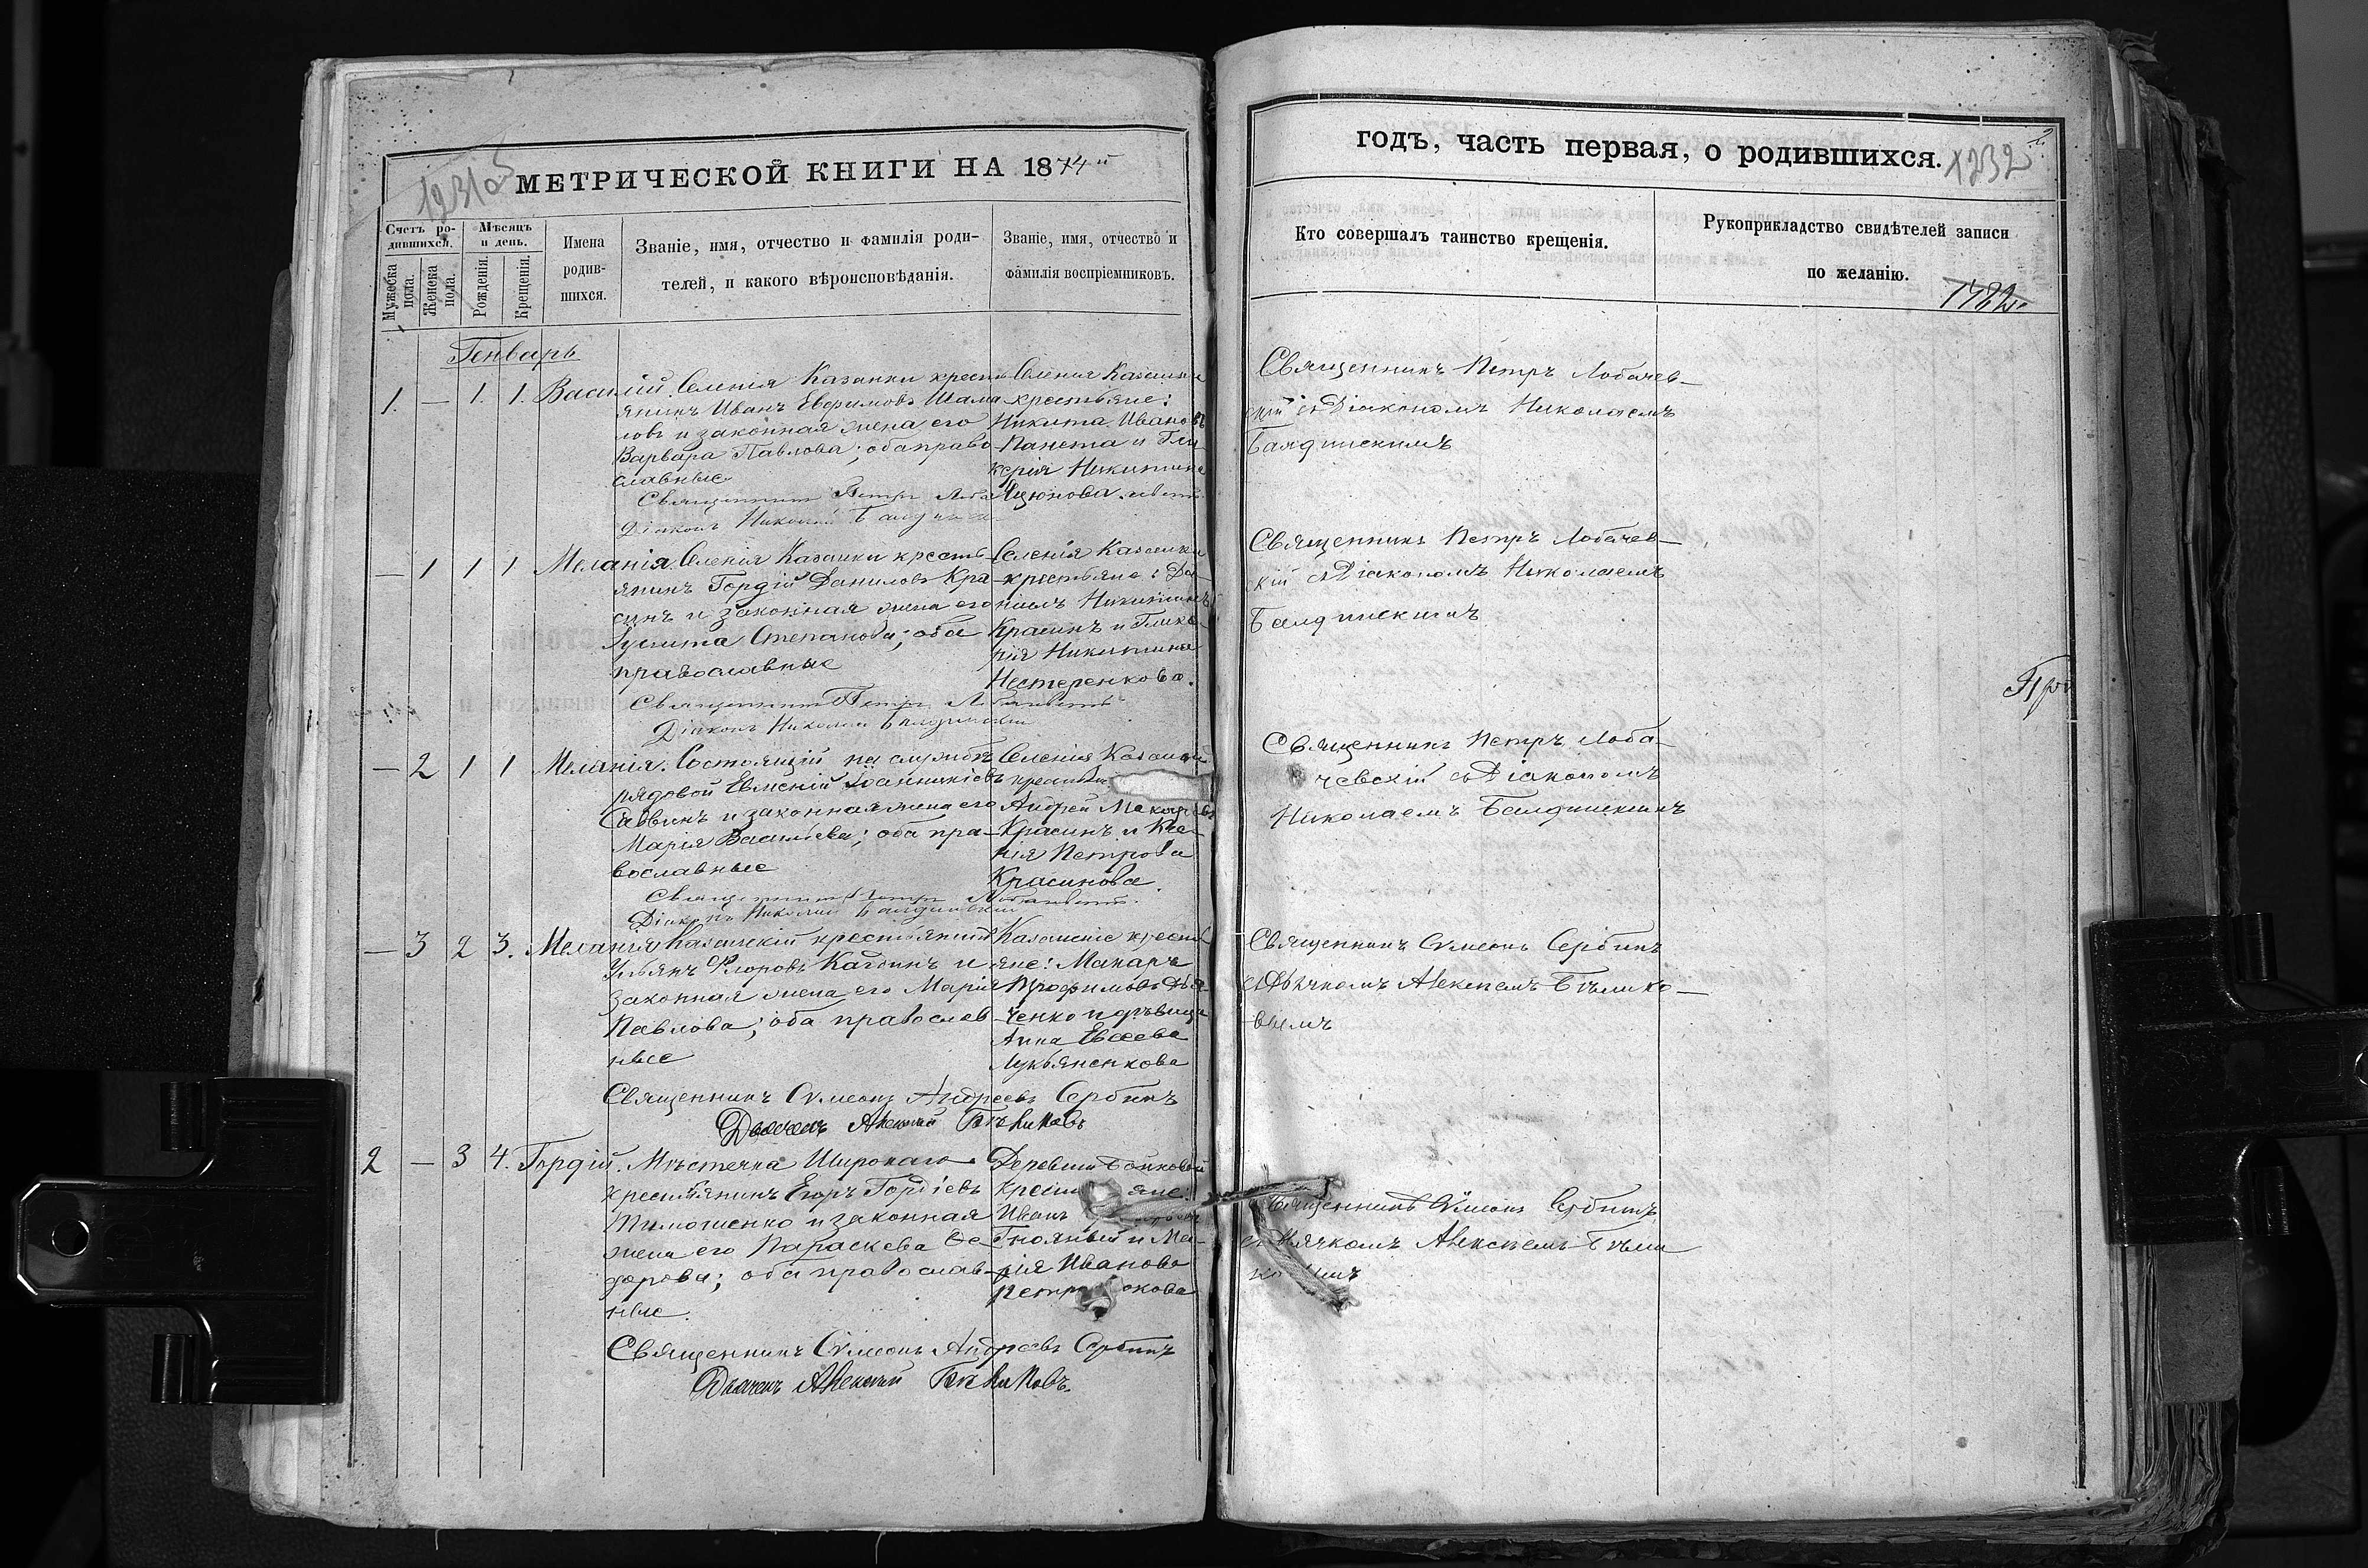 МЕТРИЧЕСКОЙ КНИГИ НА 1874й
Счетъ ро-
дившихся.
Мужеска
пола.
Женска
пола.
Мѣсяцъ
и день.
Рожденія.
Крещенія.
Имена
родив-
шихся.
Званіе, имя, отчество и фамилія роди-
телей, и какого вѣроисповѣданія.
Званіе, имя, отчество и
фамилія воспріемниковъ.
Генварь
1. — 1. 1. Василій.
Селенія Казанки кресть
янинъ Иванъ Евфимовъ Шама
ловъ и законная жена его
Варвара Павлова; оба право
славные
Священникъ Петръ
Діаконъ Николай
Селенія Казанки
крестьяне:
Никита Ивановъ
Панета и Гли
керія Никитина
Яцюнова.
— 1 1 1 Меланія.
Селенія Казанки кресть
янинъ Гордій Даниловъ Кра
синъ и законная жена его
Улита Степанова; оба
православные
Священникъ Петръ
Діаконъ Николай
Селенія Казанки
крестьяне: Да
ніилъ Никитинъ
Красинъ и Глике
рія Никитина
Нестеренкова.
— 2 1 1 Меланія.
Состоящій на службѣ
рядовой Евмений Іоанникіевъ
Саввинъ и законная жена его
Марія Васильева; оба пра-
вославные
Священникъ Петръ
Діаконъ Николай
Селенія Казанки
Андрей Макаровъ
Красинъ и Ксе-
нія Петрова
Красинова.
— 3 2 3. Меланія
Казанскій крестьянинъ
Ульянъ Флоровъ Кагдинъ и
законная жена его Марія
Павлова; оба православ
ные
Казанскіе кресть
яне: Макаръ
Трофимовъ Дья
ченко и дѣвица
Анна Евсеева
Лукьяненкова
Священникъ Сѵмеонъ Андреевъ Сербинъ
Дьячекъ Алексѣй Бѣликовъ
2 — 3 4. Гордій.
Мѣстечка Широкаго
крестьянинъ Егоръ Гордіевъ
Тимошенко и законная
жена его Параскева Ѳе
дорова; оба православ-
ные.
Деревни Бойковой
Крест яне:
Иванъ
Гнояный и Ма-
рія Иванова
Петр окова
Священникъ Сѵмеонъ Андреевъ Сербинъ
Дьячекъ Алексѣй Бѣликовъ.
годъ, часть первая, о родившихся.
1232
2
Кто совершалъ таинство крещенія.
Рукоприкладство свидѣтелей записи
по желанію.
Священникъ Петръ Лобачев-
скій съ Діакономъ Николаемъ
Балдинскимъ
Священникъ Петръ Лобачев-
скій съ Діакономъ Николаемъ
Балдинскимъ
Священникъ Петръ Лоба-
чевскій съ Діакономъ
Николаемъ Балдинскимъ
Священникъ Сѵмеонъ Сербинъ
съ Дьячкомъ Алексѣемъ Бѣлико-
вымъ
Священникъ Сѵмеонъ Сербинъ
съ Дьячкомъ Алексѣемъ Бѣли